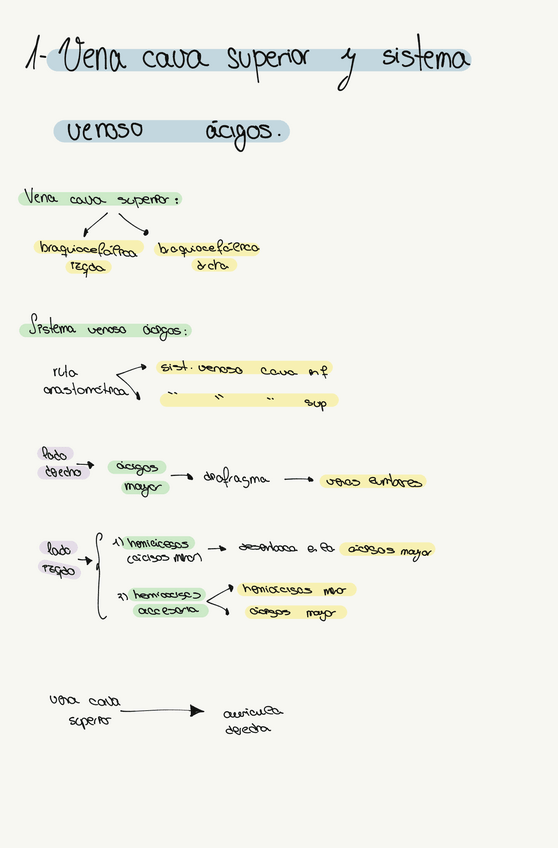 1- Vena cava superior y sistema
venoso ácigos.
Vena cava superior:
braquiocefálica braquiocefálica
izqda dcha
Sistema venoso ácigos:
ruta
anastomótica
sist. venoso cava inf
" " " sup
lado
derecho
ácigos
mayor
diafragma
venas lumbares
lado
izqdo
1) hemiácigos
(ácigos menor)
desemboca en la ácigos mayor
2) hemiácigos
accesoria
hemiácigos
ácigos mayor
vena cava
superior
aurícula
derecha